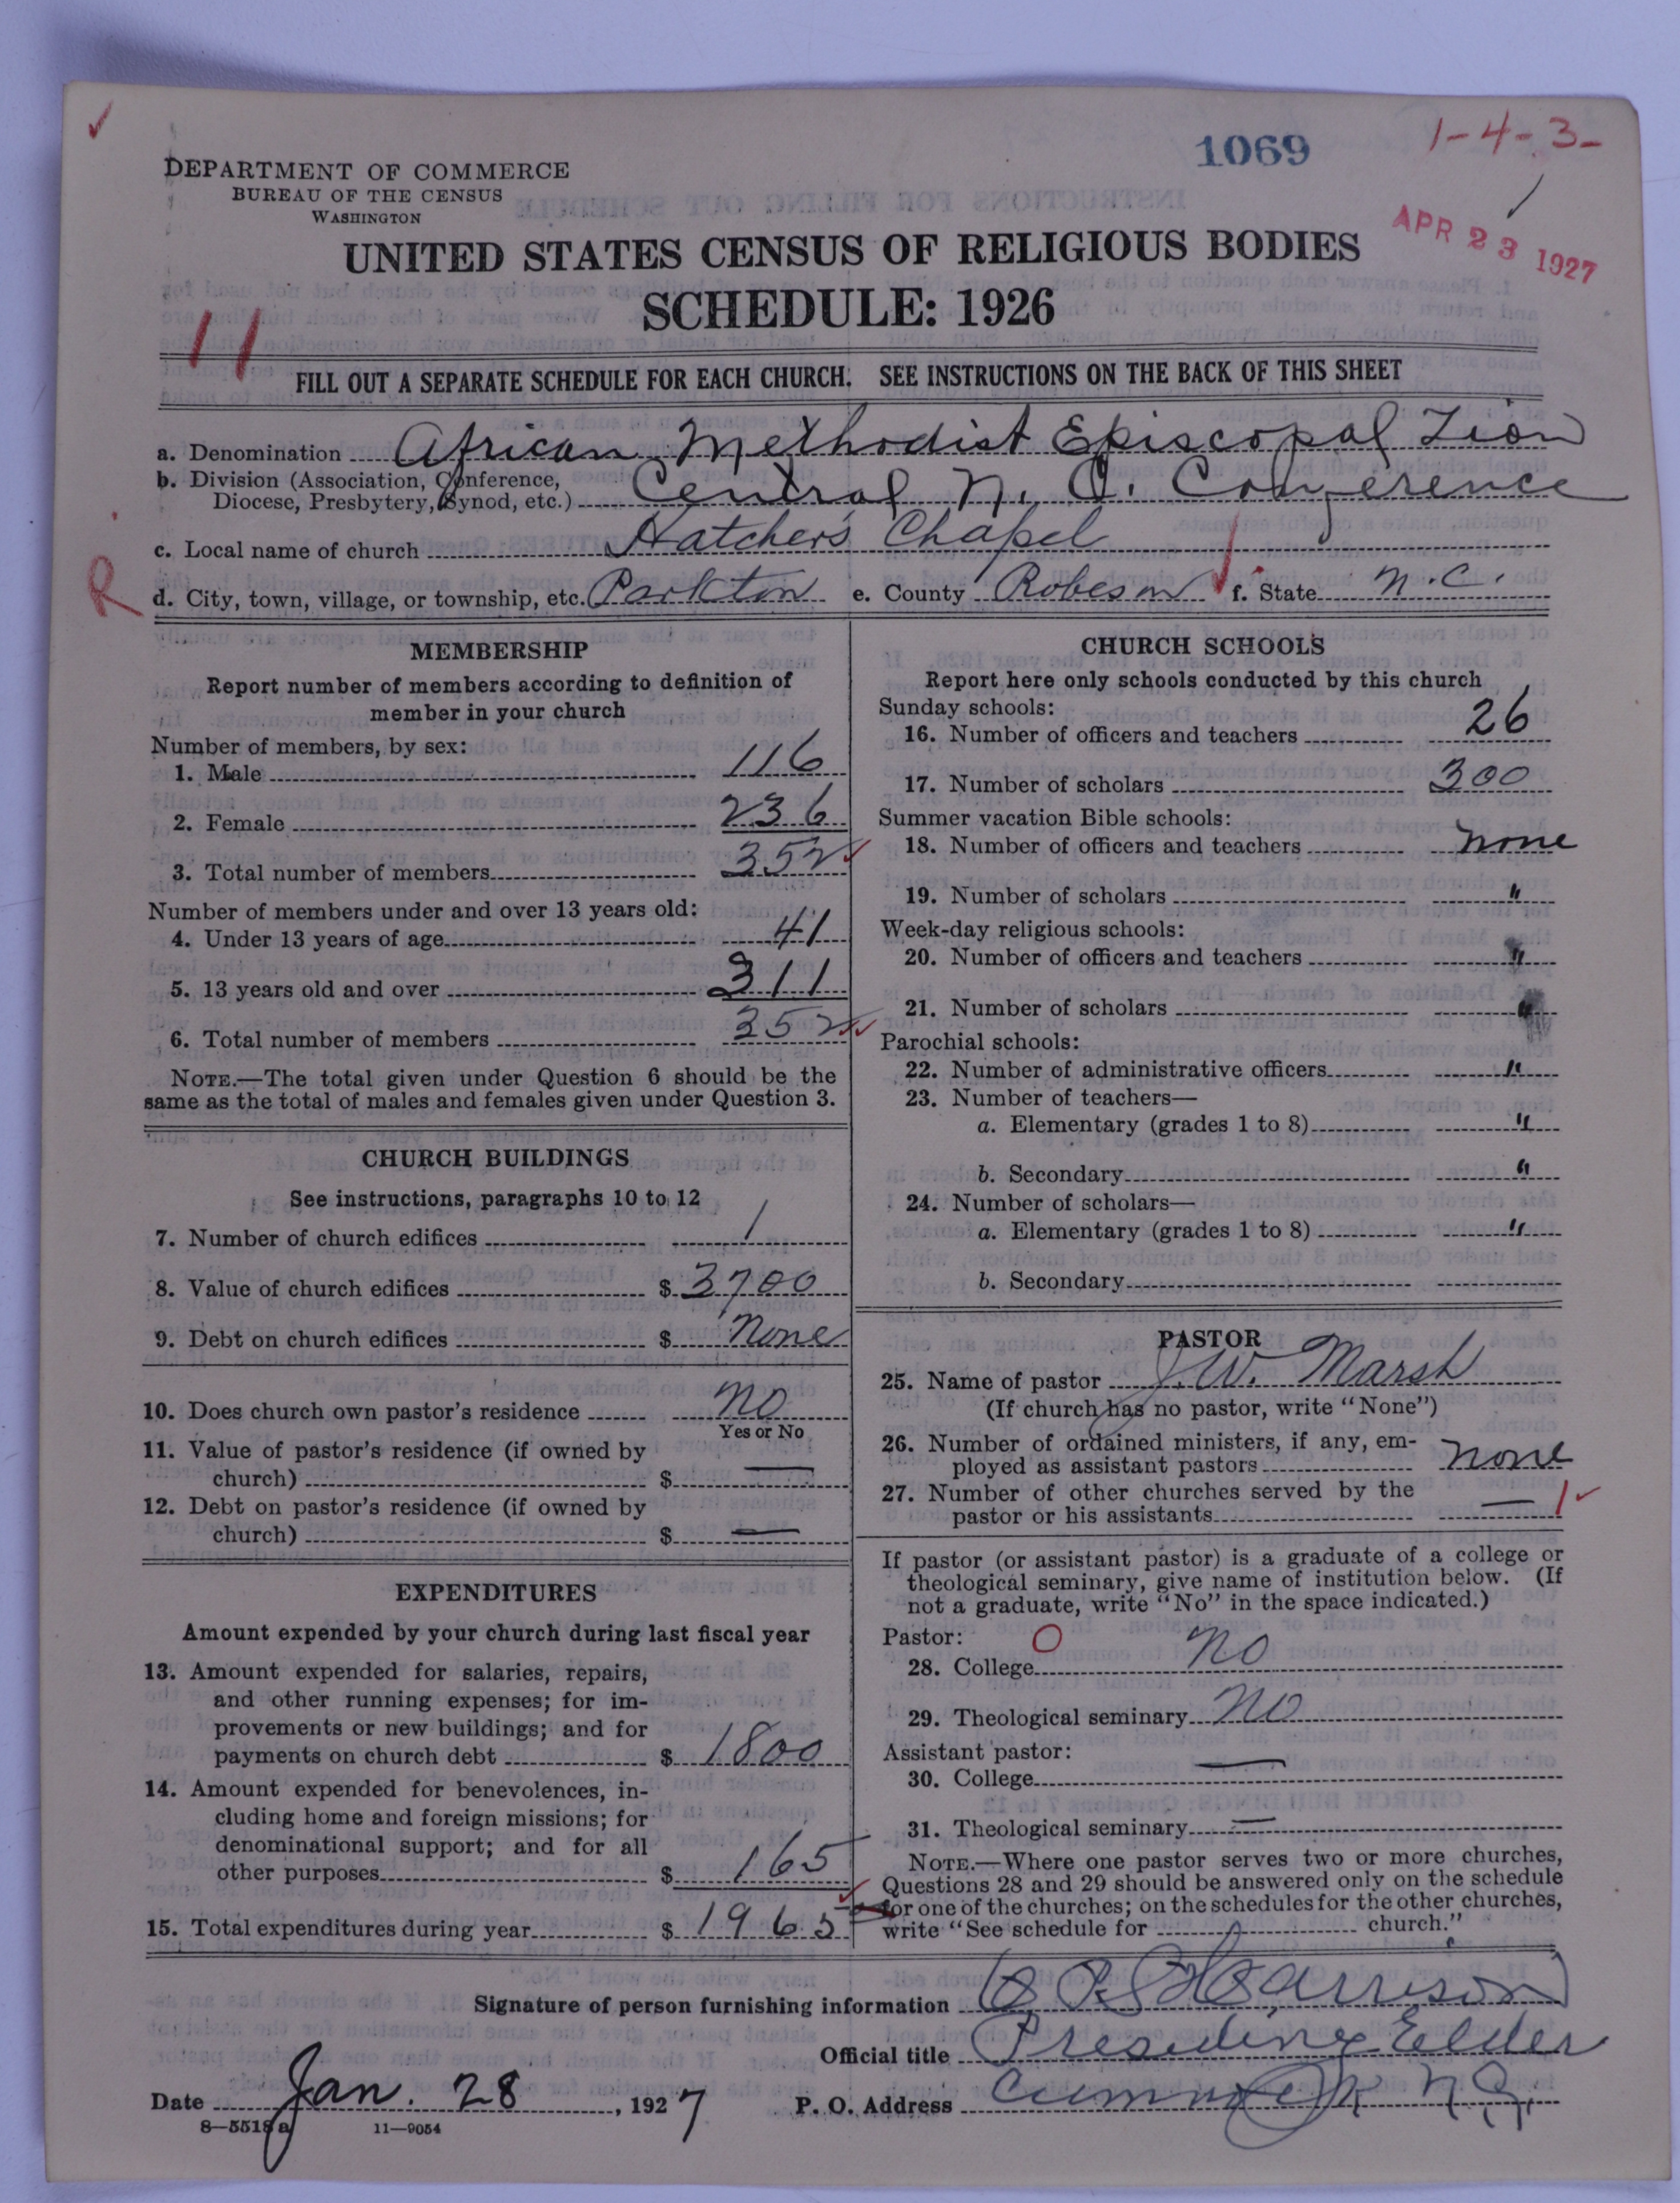 1069
1-4-3-
DEPARTMENT OF COMMERCE
BUREAU OF THE CENSUS
WASHINGTON
APR 23 1927
UNITED STATES CENSUS OF RELIGIOUS BODIES
SCHEDULE: 1926
11
FILL OUT A SEPARATE SCHEDULE FOR EACH CHURCH. SEE INSTRUCTIONS ON THE BACK OF THIS SHEET
a. Denomination African Methodist Episcopal Zion
b. Division (Association, Conference,
Diocese, Presbytery, Synod, etc.) Central N. C. Conference
c. Local name of church Hatcher's Chapel
R
d. City, town, village, or township, etc. Parkton e. County Robeson f. State N.C.
MEMBERSHIP
Report number of members according to definition of
member in your church
Number of members, by sex:
1. Male 116
2. Female 236
3. Total number of members 352
Number of members under and over 13 years old:
4. Under 13 years of age 41
5. 13 years old and over 311
6. Total number of members 352
NOTE.—The total given under Question 6 should be the
same as the total of males and females given under Question 3.
CHURCH BUILDINGS
See instructions, paragraphs 10 to 12
7. Number of church edifices 1
8. Value of church edifices $ 3700
9. Debt on church edifices $ None
10. Does church own pastor's residence No
Yes or No
11. Value of pastor's residence (if owned by
church) $ —
12. Debt on pastor's residence (if owned by
church) $ —
EXPENDITURES
Amount expended by your church during last fiscal year
13. Amount expended for salaries, repairs,
and other running expenses; for im-
provements or new buildings; and for
payments on church debt $ 1800
14. Amount expended for benevolences, in-
cluding home and foreign missions; for
denominational support; and for all
other purposes $ 165
15. Total expenditures during year $ 1965
CHURCH SCHOOLS
Report here only schools conducted by this church
Sunday schools:
16. Number of officers and teachers 26
17. Number of scholars 300
Summer vacation Bible schools:
18. Number of officers and teachers None
19. Number of scholars "
Week-day religious schools:
20. Number of officers and teachers "
21. Number of scholars "
Parochial schools:
22. Number of administrative officers "
23. Number of teachers—
a. Elementary (grades 1 to 8) "
b. Secondary "
24. Number of scholars—
a. Elementary (grades 1 to 8) "
b. Secondary
PASTOR
25. Name of pastor J. W. Marsh
(If church has no pastor, write "None")
26. Number of ordained ministers, if any, em-
ployed as assistant pastors None
27. Number of other churches served by the
pastor or his assistants — 1
If pastor (or assistant pastor) is a graduate of a college or
theological seminary, give name of institution below. (If
not a graduate, write "No" in the space indicated.)
Pastor: O
28. College No
29. Theological seminary No
Assistant pastor:
30. College —
31. Theological seminary —
NOTE.—Where one pastor serves two or more churches,
Questions 28 and 29 should be answered only on the schedule
for one of the churches; on the schedules for the other churches,
write "See schedule for church."
Signature of person furnishing information Harrison
Official title Presiding Elder
Date Jan. 28, 1927 P. O. Address Cumnock N.C.
8—5518a 11—9054